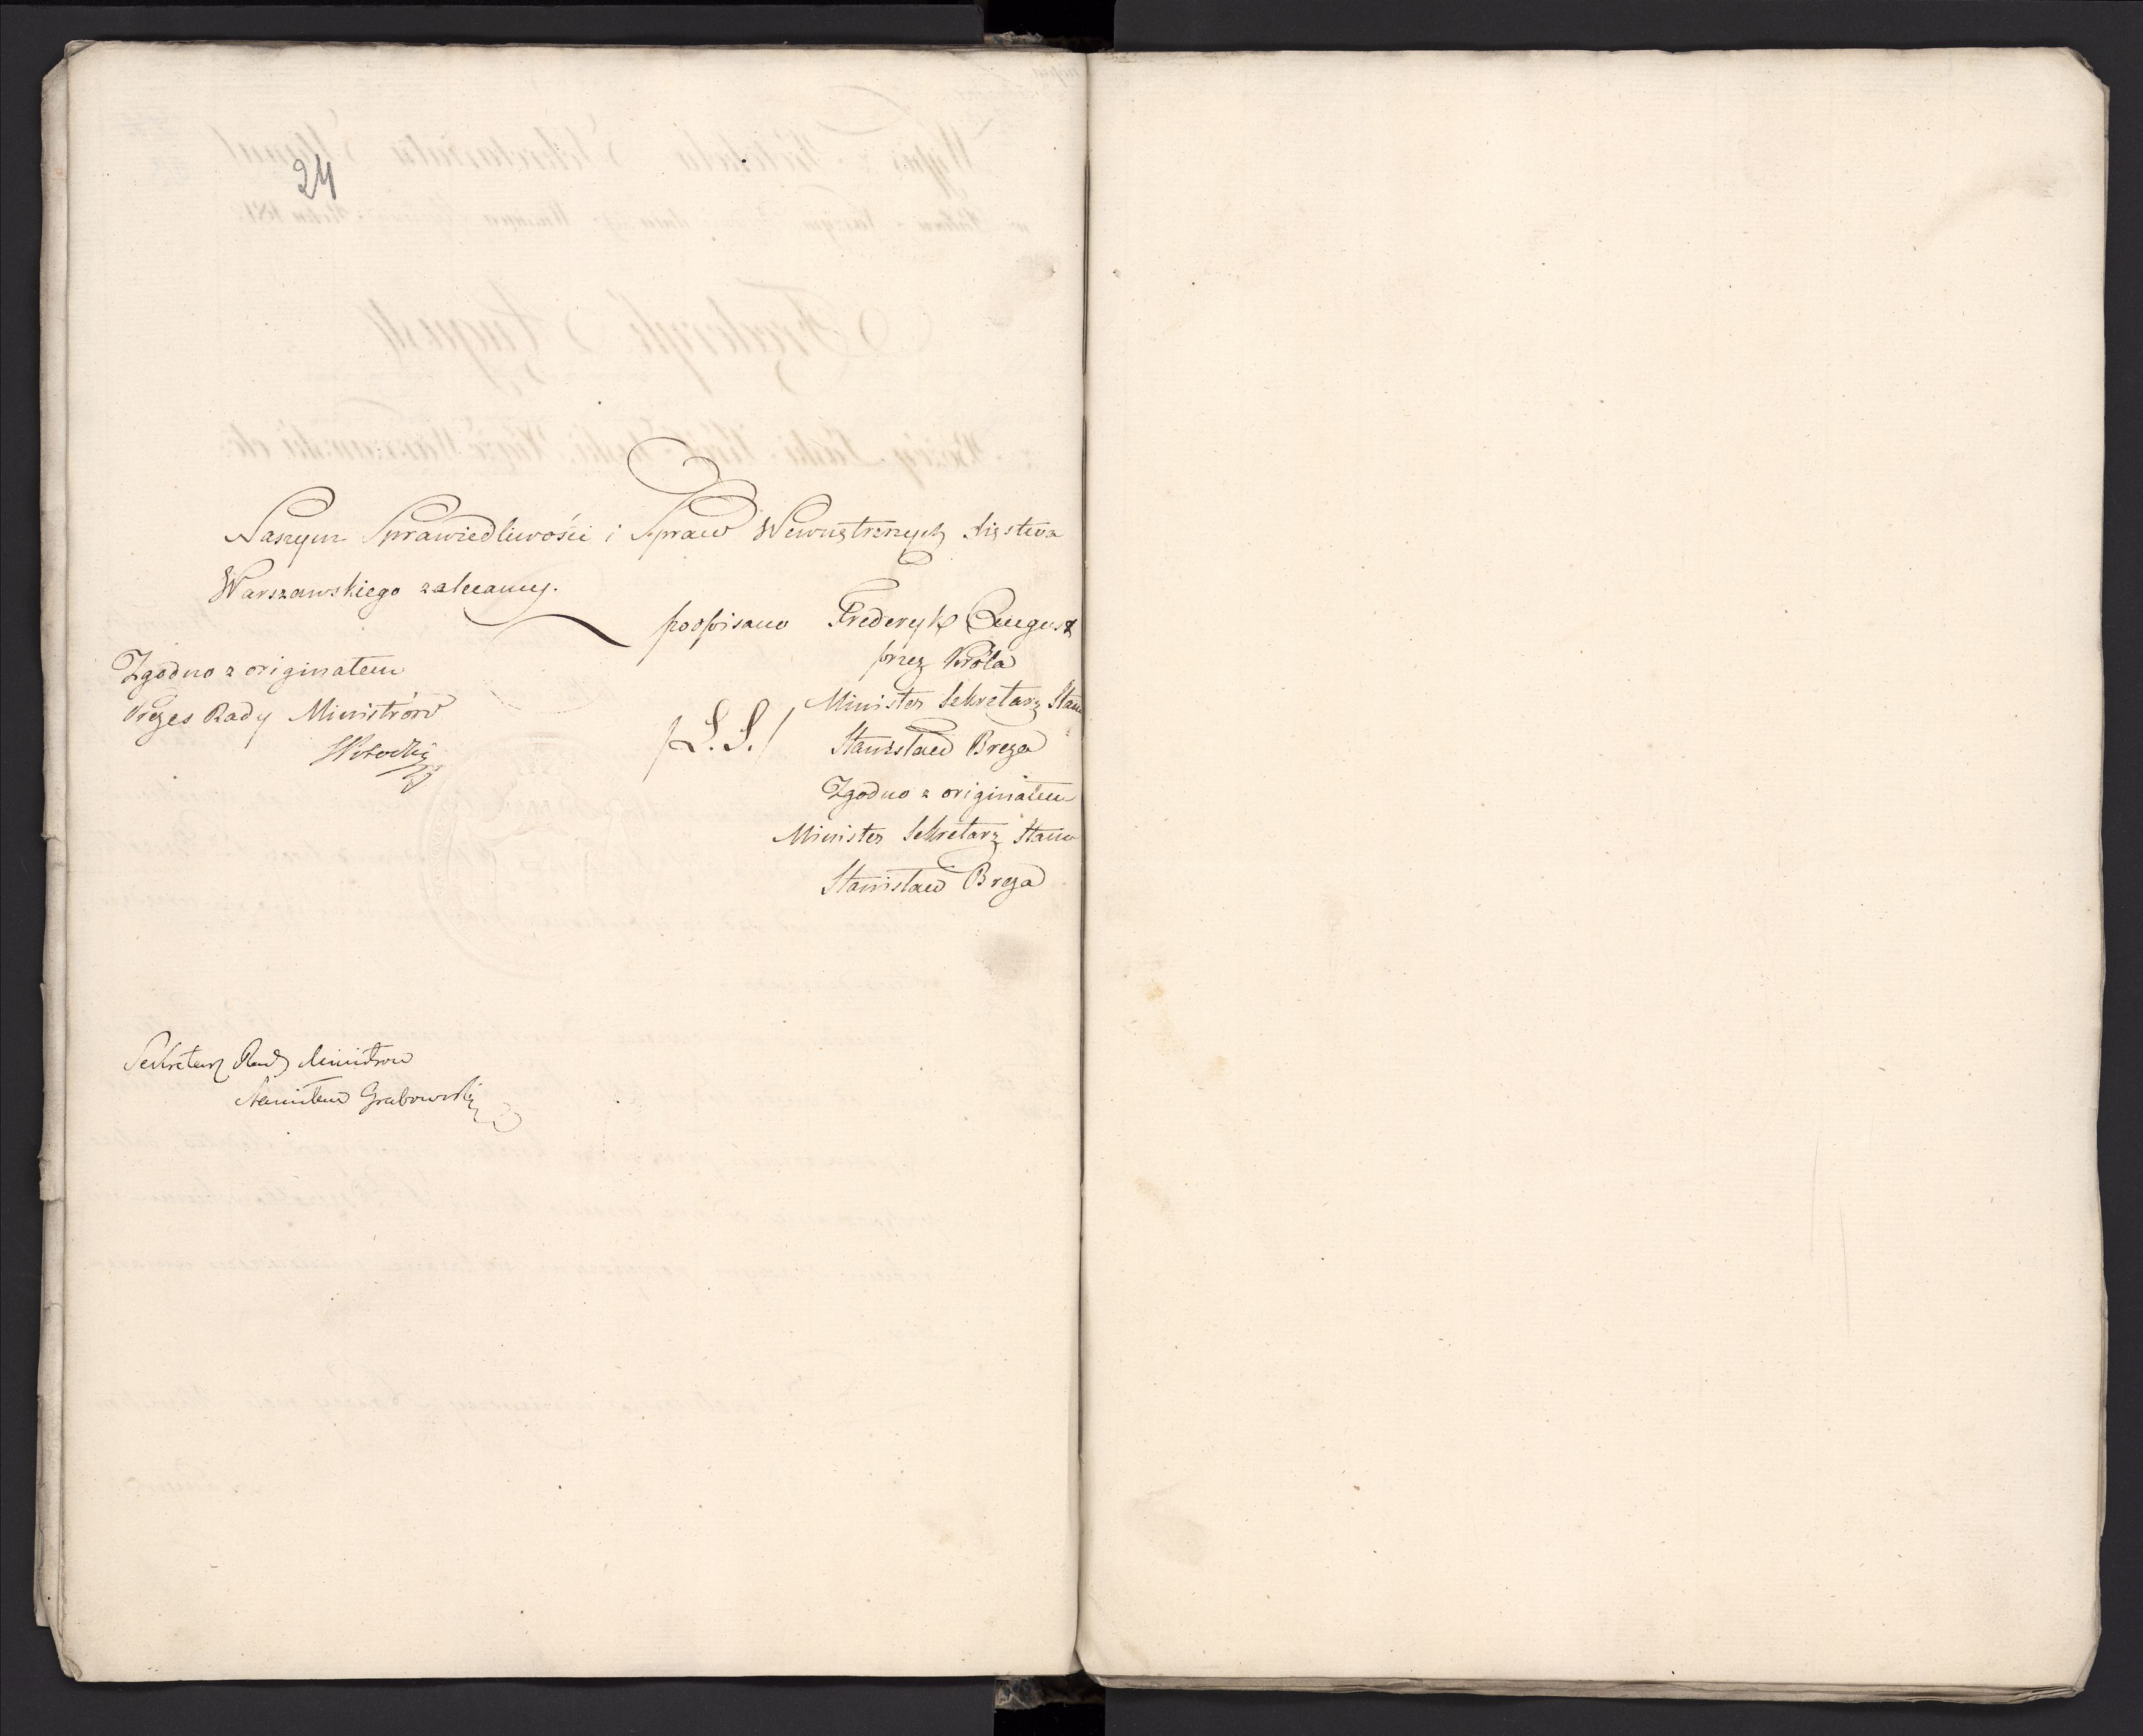 24
Naszym Sprawiedliwości i Spraw Wewnętrznych Xięstwa
Warszawskiego zalecamy.
podpisano Frederyk August
przez Króla
Minister Sekretarz Stanu
/L.S./ Stanisław Breza
Zgodno z originałem
Minister Sekretarz Stanu
Stanisław Breza
Zgodno z originałem
Prezes Rady Ministrów
Sekretarz Rady Ministrow
Stanisław Grabowski